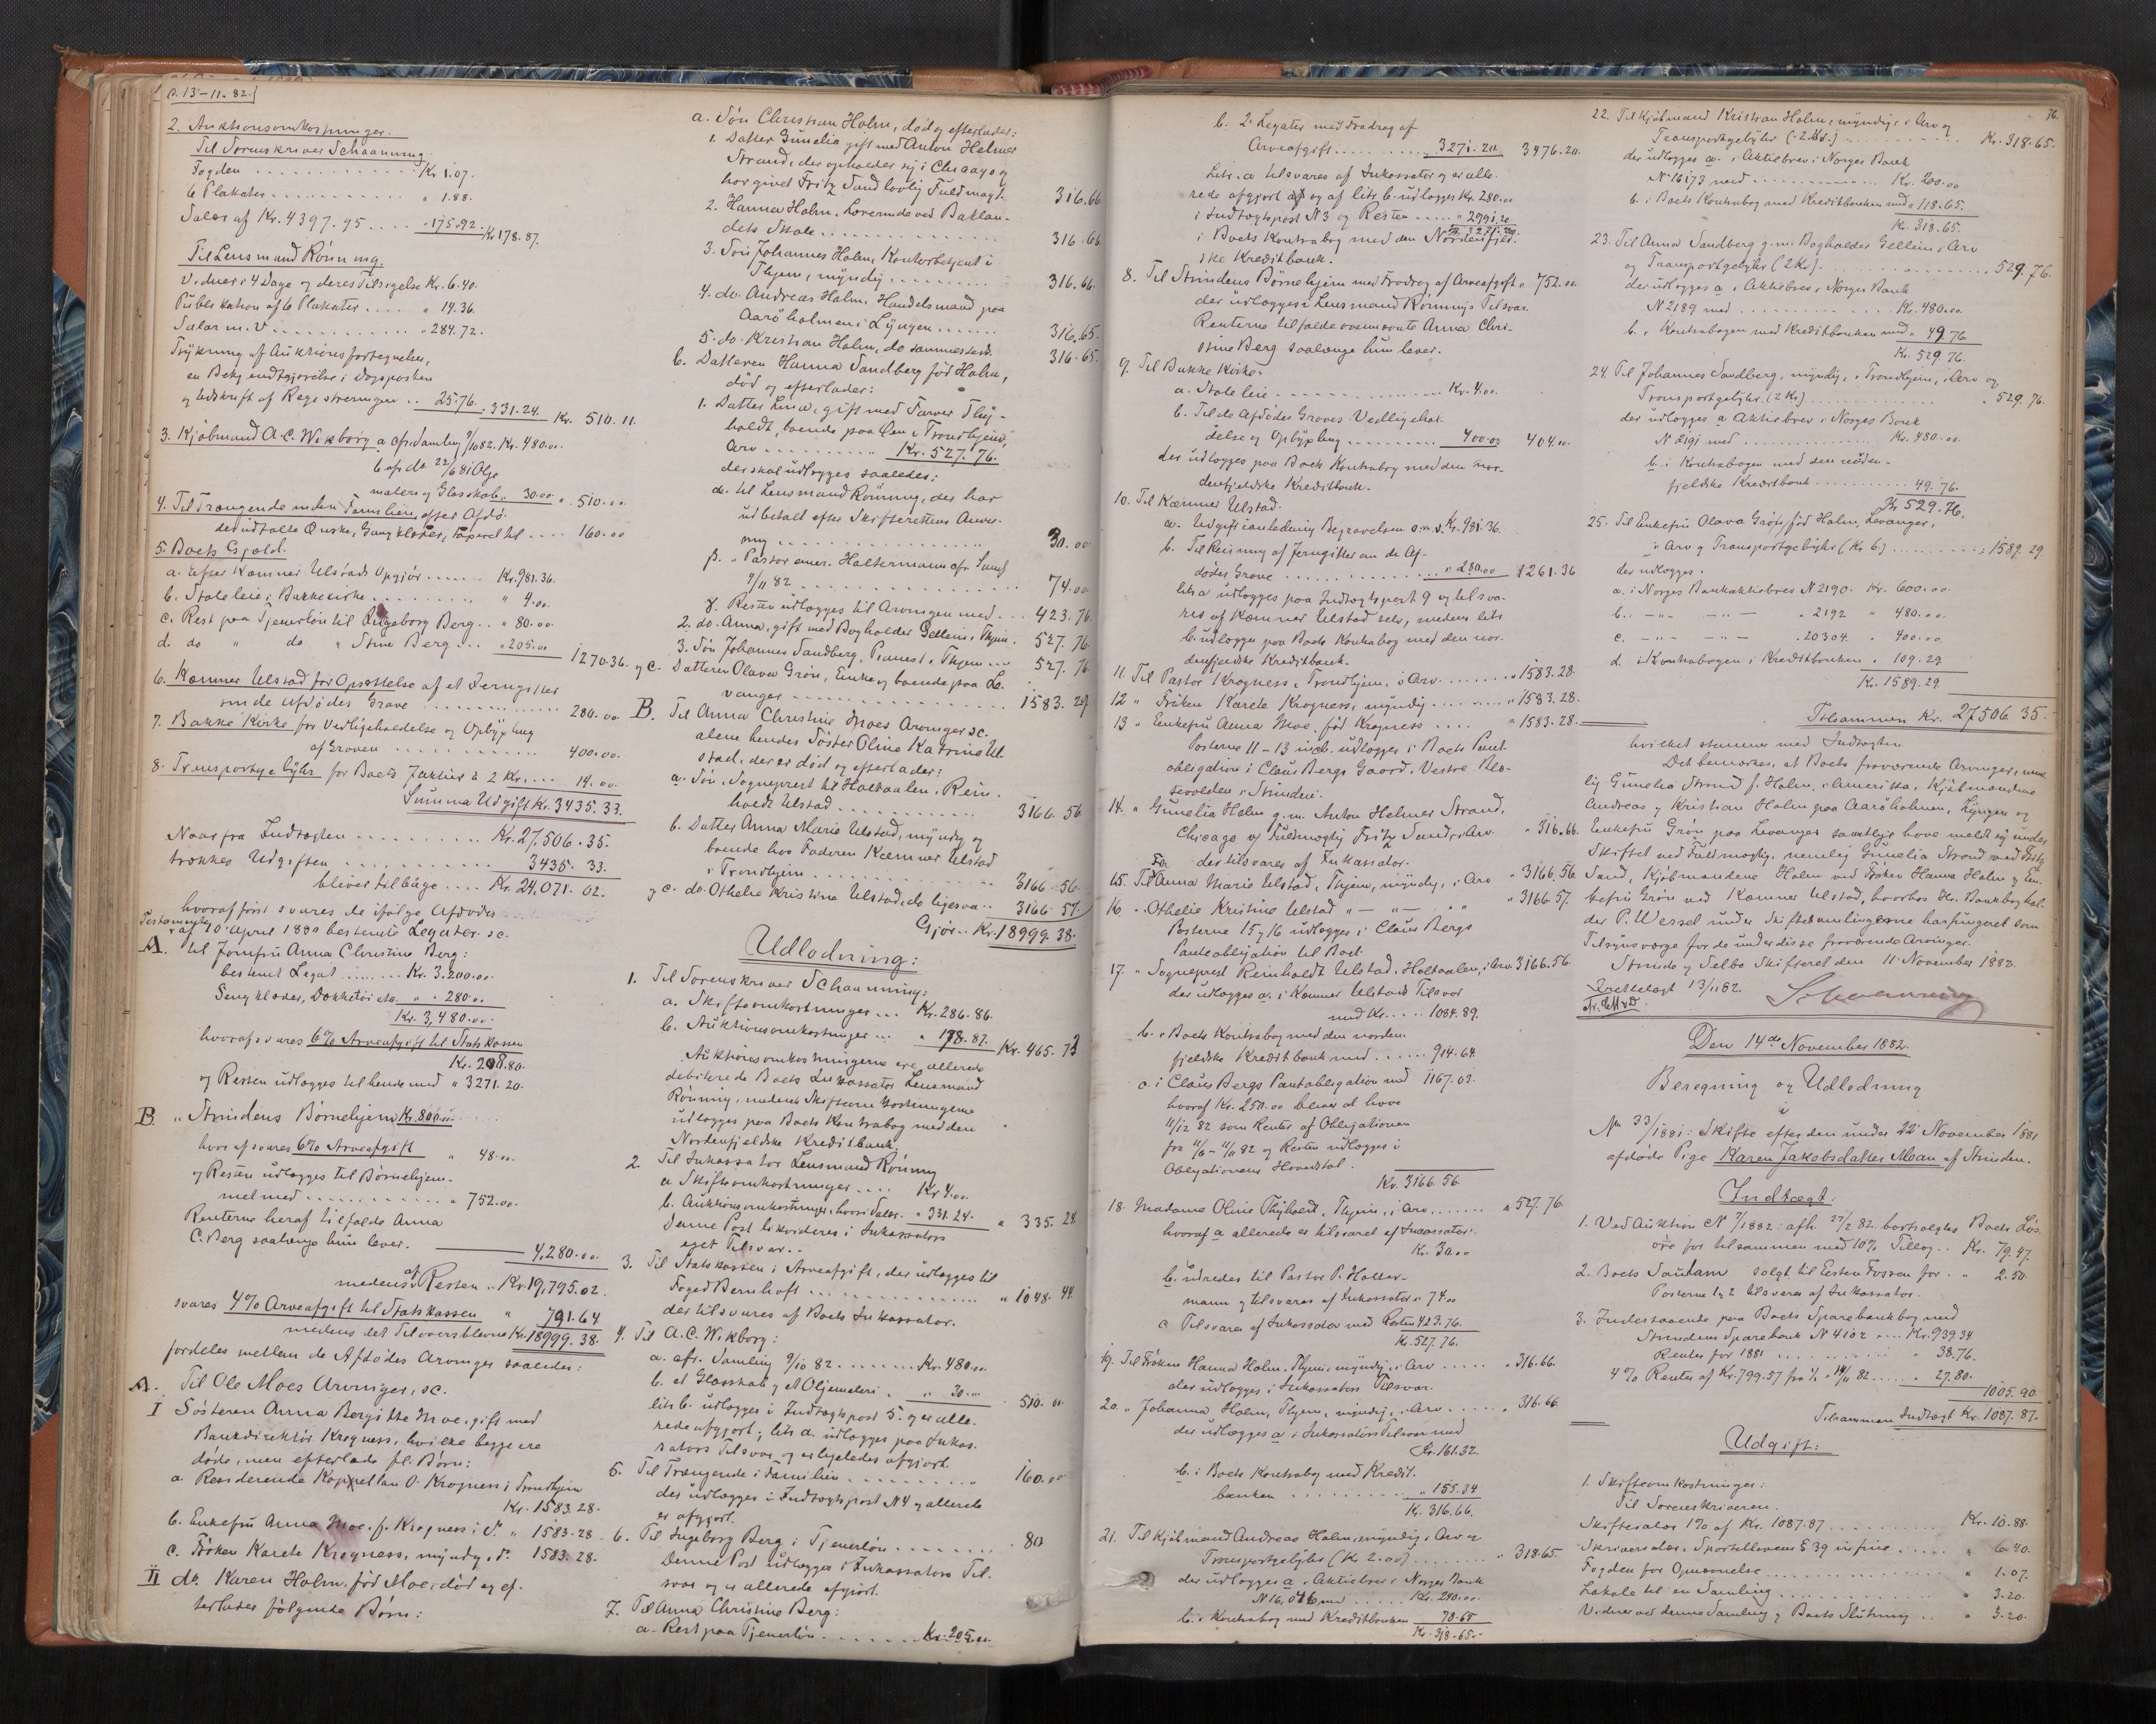 d. 13-11-82.
2. Auktionsomkostninger.
Til Sorenskriver Schaanning.
Fogden ............ Kr. 1.07.
6 Plakater ............ " 1.88.
Salær af Kr. 4397.95 .... " 175.92. Kr. 178.87.
Til Lensmand Rönning.
Vidner i 4 Dage og deres Tilsigelse Kr. 6.40.
Publikation af 6 Plakater .... " 14.36.
Salær m.V. ............ " 284.72.
Trykning af Auktionsfortegnelse,
en Bekjendtgjörelse i Dagsposten
og Udskrift af Registreringen .. 25.76. " 331.24. Kr. 510.11.
3. Kjöbmand A.C. Wikborg a. efr. Samling 9/10 82. Kr. 480.00.
b. efr. do. 22/6 81 Olje
maleri og Glasskab " 30.00 " 510.00
4. Til Trængende inden Familien efter Afdö-
des udtalte Önske, Gangklæder, Taxeret til .... 160.00
5. Boets Gjæld.
a. Efter Kæmner Ulstads Opgjör ...... Kr. 981.36.
b. Stoleleie i Bakkekirke ........ " 4.00.
c. Rest paa Tjenerlön til Ingeborg Berg .. " 80.00.
d. do " do " Stine Berg ... " 205.00 1270.36.
6. Kæmner Ulstad for Opsættelse af et Jerngitter
om de Afdödes Grave ............ 280.00
7. Bakke Kirke for Vedligeholdelse og Opbygning
af Graven ............ 400.00.
8. Transportgebyhr for Boets 7 aktier à 2 Kr. .... 14.00.
Summa Udgift Kr. 3435.33.
Naar fra Indtægten ......... Kr. 27,506.35.
trækkes Udgiften ............ 3435.33.
bliver tilbage .... Kr. 24,071.02.
hvoraf först svares de ifölge Afdödes
Testamente af 10 April 1880 bestemte Legater. sc.
A. til Jomfru Anna Christine Berg:
bestemt Legat ....... Kr. 3.200.00.
Sengklæder, Dækketöi etc. " " 280.00.
Kr. 3,480.00.
hvoraf svares 6% Arveafgift til Statskassen
Kr. 208.80.
og Resten udlægges til hende med " 3271.20.
B. " Strindens Börnehjem Kr. 800.00
hvoraf svares 6% Arveafgift " 48.00.
og Resten udlægges til Börnehjem-
met med ............ " 752.00.
Renterne heraf tilfalde Anna
C. Berg saalænge hun lever. 4,280.00
medens af Resten .. Kr. 19,795.02.
svares 4% Arveafgift til Statskassen " 791.64
medens det Tiloversblevne Kr. 18999.38.
fordeles mellem de Afdödes Arvinger saaledes:
A. Til Ole Moes Arvinger, sc.
I Sösteren Anna Bergitte Moe, gift med
Bankdirektör Krogness, hvilke begge ere
döde, men efterlade fl. Börn:
a. Residerende Kapellan O. Krogness i Trondhjem
Kr. 1583.28.
b. Enkefru Anna Moe f. Krogness i do. " 1583.28.
c. Fröken Karete Krogness, myndig, do. 1583.28.
II do. Karen Holm, född Moe, död og ef-
terlader fölgende Börn:
a. Sön Christian Holm, död og efterlader:
1. Datter Gunelia gift med Anton Helmer
Strand, der opholder sig i Chicago og
har givet Fritz Sand lovlig Fuldmagt. 316.66
2. Hanna Holm, Lærerinde ved Baklan-
dets Skole ............ 316.66
3. Sön Johannes Holm, Kontorbetjent i
Thjem, myndig ............ 316.66
4. do. Andreas Holm, Handelsmand paa
Aaröholmen i Lyngen ....... 316.65.
5. do. Kristian Holm, do sammested. 316.65.
b. Datteren Hanna Sandberg född Holm,
död og efterlader:
1. Datter Lina, gift med Farver Thy-
holdt, boende paa Øen i Trondhjem,
Arv .......... Kr. 527.76.
der skal udlægges saaledes:
α. til Lensmand Rönning, der har
udbetalt efter Skifterettens Anvis-
ning ............ 30.00
β. " Pastor emer. Haltermann efr. Saml
9/11 82 ............ 74.00
γ. Resten udlægges til Arvingen med ... 423.76
2. do. Anna, gift med Bogholder Gellein i Thjem. 527.76
3. Sön Johannes Sandberg, i Thjem ... 527.76
og c. Datteren Olava Grön, Enke og boende paa Le-
vanger ............ 1583.29
B. Til Anna Christine Moes Arvinger sc.
alene hendes Söster Oline Katrine Ul-
stad, der er död og efterlader:
a. Sön, Sogneprest til Holtaalen, Rein-
holdt Ulstad ............ 3166.56
b. Datter Anna Marie Ulstad, myndig og
boende hos Faderen Kæmner Ulstad
i Trondhjem ............ 3166.56.
og c. do. Othelie Kristine Ulstad, do ligesaa .. 3166.57.
Gjör .. Kr. 18999.38.
Udlodning:
1. Til Sorenskriver Schaanning:
a. Skifteomkostninger ... Kr. 286.86.
b. Auktionsomkostninger ... " 178.87. Kr. 465.73
Auktionsomkostningerne ere allerede
debiterede Boets Inkassator Lensmand
Rönning, medens Skifteomkostningerne
udlægges paa Boets Kontrabog med den
Nordenfjeldske Kreditbank.
2. Til Inkassator Lensmand Rönning
a. Skifteomkostninger .... Kr. 4.00
b. Auktionsomkostninger, hvori Salær. " 331.24. " 335.24
Denne Post likvideres i Inkassators
eget Tilsvar.
3. Til Statskassen i Arveafgift, der udlægges til
Foged Bernhoft ............ " 1048.44.
der tilsvares af Boets Inkassator.
4. Til A.C. Wikborg:
a. efr. Samling 9/10 82 ........ Kr. 480.00
b. et Glasskab og et Oljemaleri . " 30.00 510.00
litr. b. udlægges i Indtægtspost 5. og er alle-
rede afgjort; litr. a. udlægges paa Inkas-
sators Tilsvar og er ligeledes afgjort.
5. Til Trængende i Familien ............ 160.00
der udlægges i Indtægtspost N 4 og allerede
er afgjort.
6. Til Ingeborg Berg i Tjenerlön ........ 80
Denne Post udlægges i Inkassators Til-
svar og er allerede afgjort.
7. Til Anna Christine Berg:
a. Rest paa Tjenerlön ....... Kr. 205.00.
76.
b. 2 Legater med Fradrag af
Arveafgift ............ 3271.20 3476.20.
Litr. a tilsvares af Inkassator og er alle-
rede afgjort og af litr. b. udlægges Kr. 280.00
i Indtægtspost N 3 og Resten ..... " 2991.20
Kr. 3271.20.
i Boets Kontrabog med den Nordenfjeld-
ske Kreditbank.
8. Til Strindens Börnehjem med Fradrag af Arveafgift " 752.00.
der udlægges i Lensmand Rönnings Tilsvar.
Renterne tilfalde ovennævnte Anna Chri-
stine Berg saalænge hun lever.
9. Til Bakke Kirke:
a. Stoleleie ............ Kr. 4.00.
b. Til de Afdödes Graves Vedligehol-
delse og Opbygning ......... 400.00 404.00.
der udlægges paa Boets Kontrabog med den nor-
denfjeldske Kreditbank.
10. Til Kæmner Ulstad.
a. Udgift i anledning Begravelsen o.m.v. Kr. 981.36.
b. Til Reisning af Jerngitter om de Af-
dödes Grave ............ " 280.00 1261.36
litr. a udlægges paa Indtægtspost 9 og tilsva-
res af Kæmner Ulstad selv, medens litr.
b. udlægges paa Boets Kontrabog med den nor-
denfjeldske Kreditbank.
11. Til Pastor Krogness i Trondhjem, i Arv ....... " 1583.28.
12 " Fröken Karete Krogness, myndig ........ " 1583.28.
13 " Enkefru Anna Moe, född Krogness .... " 1583.28.
Posterne 11-13 incl. udlægges i Boets Pant-
obligation i Claus Bergs Gaard, Vestre Ro-
sevolden i Strinden.
14. " Gunelia Holm g.m. Anton Helmer Strand,
Chicago v/ Fuldmægtig Fritz Sand, i Arv. " 316.66.
der tilsvares af Inkassator.
15. Til Frk. Anna Marie Ulstad, Thjem, myndig, i Arv " 3166.56.
16 " Othelie Kristine Ulstad " — " — " " " 3166.57.
Posterne 15 og 16 udlægges i Claus Bergs
Pantobligation til Boet.
17. " Sogneprest Reinholdt Ulstad, Holtaalen, i Arv 3166.56.
der udlægges a. i Kæmner Ulstads Tilsvar
med Kr. .... 1084.89.
b. i Boets Kontrabog med den norden-
fjeldske Kreditbank med ...... 914.64.
c. i Claus Bergs Pantobligation med 1167.03.
hvoraf Kr. 250.00 bliver at hæve
11/12 82 som Renter af Obligationen
fra 11/6 - 11/12 82 og Resten udlægges i
Obligationens Hovedstol.
Kr. 3166.56.
18. Madame Oline Thyholdt, Thjem, i Arv ....... " 527.76.
hvoraf a allerede er tilsvaret af Inkassator.
Kr. 30.00
b. udredes til Pastor P. Halter-
mann og tilsvares af Inkassator " 74.00
c. Tilsvares af Inkassator med Resten 423.76.
Kr. 527.76.
19. Til Fröken Hanna Holm, Thjem, myndig, i Arv ..... " 316.66.
der udlægges i Inkassators Tilsvar.
20. " Johannes Holm, Thjem, myndig, i Arv ..... " 316.66
der udlægges a. i Inkassators Tilsvar med
Kr. 161.32.
b. i Boets Kontrabog med Kredit-
banken ............ " 155.34
Kr. 316.66.
21. Til Kjöbmand Andreas Holm, myndig i Arv og
Transportgebyhr (Kr. 2.00) ........ " 318.65.
der udlægges a. i Aktiebrev i Norges Bank
N 16,016 med ..... Kr. 240.00
b. i Kontrabog med Kreditbanken 78.65
Kr. 318.65.
22. Til Kjöbmand Kristian Holm, myndig, i Arv og
Transportgebyhr (2 Kr.) ............ Kr. 318.65.
der udlægges a. i Aktiebrev i Norges Bank
N 16173 med ............ Kr. 200.00
b. i Boets Kontrabog med Kreditbanken med " 118.65.
Kr. 318.65.
23. Til Anna Sandberg g.m. Bogholder Gellein i Arv
og Transportgebyhr (2 Kr.) ............ 529.76.
der udlægges a. i Aktiebrev i Norges Bank
N 2189 med ............ Kr. 480.00
b. i Kontrabogen med Kreditbanken med " 49.76
Kr. 529.76.
24. Til Johannes Sandberg, myndig, i Trondhjem, i Arv og
Transportgebyhr (2 Kr.) ............ " 529.76.
der udlægges a. Aktiebrev i Norges Bank
N 2191 med ............ Kr. 480.00.
b. i Kontrabogen med den norden-
fjeldske Kreditbank ........... 49.76.
Kr. 529.76.
25. Til Enkefru Olava Grön, född Holm, Levanger,
i Arv og Transportgebyhr (Kr. 6) .......... " 1589.29.
der udlægges.
a. i Norges Bankaktiebrev N 2190. Kr. 600.00.
b. — " — — " — " 2192 " 480.00.
c. — " — — " — " 20304. " 400.00.
d. i Kontrabogen i Kreditbanken . 109.29
Kr. 1589.29.
Tilsammen Kr. 27506.35.
hvilket stemmer med Indtægten.
Det bemærkes, at Boets fraværende Arvinger, nem-
lig Gunelia Strand f. Holm, i Amerika, Kjöbmændene
Andreas og Kristian Holm paa Aaröholmen, Lyngen og
Enkefru Grön paa Levanger samtlige have meldt sig under
Skiftet ved Fuldmægtig, nemlig Gunelia Strand ved Fritz
Sand, Kjöbmændene Holm ved Fröken Hanna Holm og En-
kefru Grön ved Kæmner Ulstad, hvorhos Hr. Bankboghol-
der P. Wessel under Skiftesamlingerne har fungeret som
Tilsynsværge for de under disse fraværende Arvinger.
Strinde og Selbo Skifteret den 11 November 1882.
Fremlagt 13/11 82. Schaanning
Den 14de November 1882.
Beregning og Udlodning
i
No. 33/1881: Skifte efter den under 22 November 1881
afdöde Pige Karen Jakobsdatter Moan af Strinden.
Indtægt.
1. Ved Auktion N 7/1882: afh. 27/2 82 bortsolgtes Boets Lös-
öre for tilsammen med 10% Tillæg .. Kr. 79.47.
2. Boets Saulam solgt til Esten Fossen for . " 2.50.
Posterne 1 og 2 tilsvares af Inkassator.
3. Indestaaende paa Boets Sparebankbog med
Strindens Sparebank N 4102 .... Kr. 939.34
Renter for 1881 ............ " 38.76.
4% Renter af Kr. 799.57 fra 1/1 - 14/11 82 ...... " 27.80.
1005.90.
Tilsammen Indtægt Kr. 1087.87.
Udgift:
1. Skifteomkostninger:
Til Sorenskriveren.
Skiftesalær 1% af Kr. 1087.87 ............ Kr. 10.88.
Skriversalær, Sportellovens § 39 in fine ..... " 6.40.
Fogden for Opnævnelse ............ " 1.07.
Lokale til en Samling ............ " 3.20.
Vidner ved denne Samling og Boets Slutning .. " 3.20.